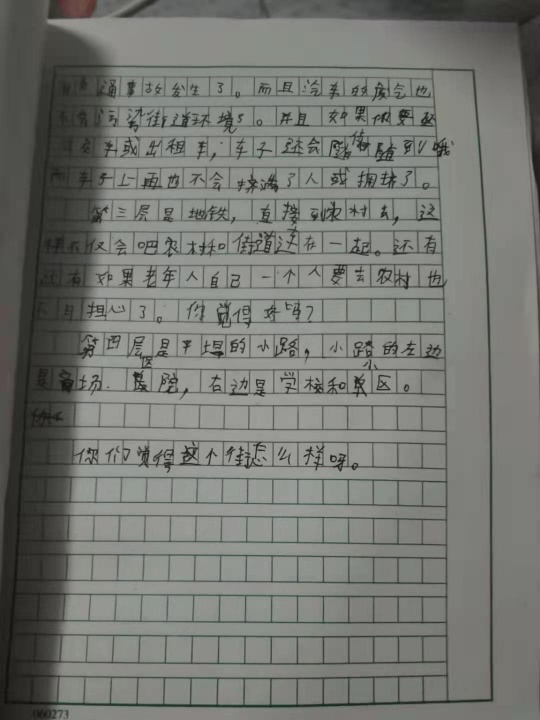 通事故发生了。而且汽车的废气也
污染街道环境了。并且如果你要
车或出租车,车子还会随 随到哦
而车子上再也不会挤满了人或拥挤了。
第三层是地铁,直接到农村去,这
样不仅会吧农村和街道连在一起。还有
有如果老年人自己一个人要去农村也
不用担心了。你觉得好吗?
第四层是平坦的小路,小路的左边
是商场.医院,右边是学校和小区。
你们觉得这个街怎么样呀。
060273